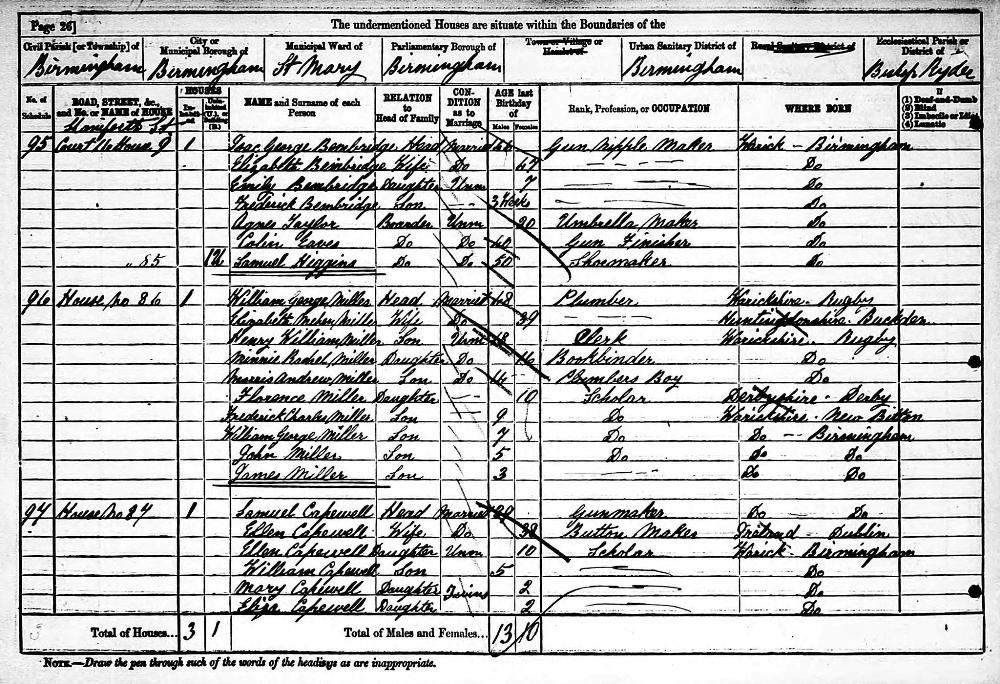 Page 26] The undermentioned Houses are situate within the Boundaries of the
Civil Parish [or Township] of City or Municipal Borough of Municipal Ward of Parliamentary Borough of Town or Village or Hamlet of Urban Sanitary District of Rural Sanitary District of Ecclesiastical Parish or District of
Birmingham Birmingham St Mary Birmingham Birmingham Bishop Ryder
No. of Schedule ROAD, STREET, &c., and No. or NAME of HOUSE HOUSES In-habit-ed Unin-habited (U.), or Building (B.) NAME and Surname of each Person RELATION to Head of Family CON-DITION as to Marriage AGE last Birthday of Males Females Rank, Profession, or OCCUPATION WHERE BORN If (1) Deaf-and-Dumb (2) Blind (3) Imbecile or Idiot (4) Lunatic
Staniforth St
95 Court 16 House 9 1 Isac George Bembridge Head Married Gun Nipple Maker Warick - Birmingham
Elizabeth Bembridge Wife Do Do
Emily Bembridge Daughter Unm 7 Do
Frederick Bembridge Son 3 Weeks Do
Agnes Taylor Boarder Unm 20 Umbrella Maker Do
Colin Eaves Do Do 40 Gun Finisher Do
" 85 1U Samuel Higgins Do Do 50 Shoemaker Do
96 House, no 86 1 William George Miller Head Married 48 Plumber Warickshire - Rugby
Elizabeth Miller Wife Do 39 Huntingdonshire - Buckden
Henry William Miller Son Unm 18 Clerk Warickshire - Rugby
Minnie Rachel Miller Daughter Do 16 Bookbinder Do
Morris Andrew Miller Son Do 14 Plumbers Boy Do
Florence Miller Daughter 10 Scholar Derbyshire - Derby
Frederick Charles Miller Son 9 Do Warickshire - New
William George Miller Son 7 Do Do - Birmingham
John Miller Son 5 Do Do Do
James Miller Son 3 Do Do
97 House, no 87 1 Samuel Capewell Head Married 39 Gunmaker Do - Do
Ellen Capewell Wife Do 38 Button Maker Ireland - Dublin
Ellen Capewell Daughter Unm 10 Scholar Warick - Birmingham
William Capewell Son 5 Do
Mary Capewell Daughter Twins 2 Do
Eliza Capewell Daughter 2 Do
Total of Houses... 3 1 Total of Males and Females... 13 10
NOTE.—Draw the pen through such of the words of the headings as are inappropriate.